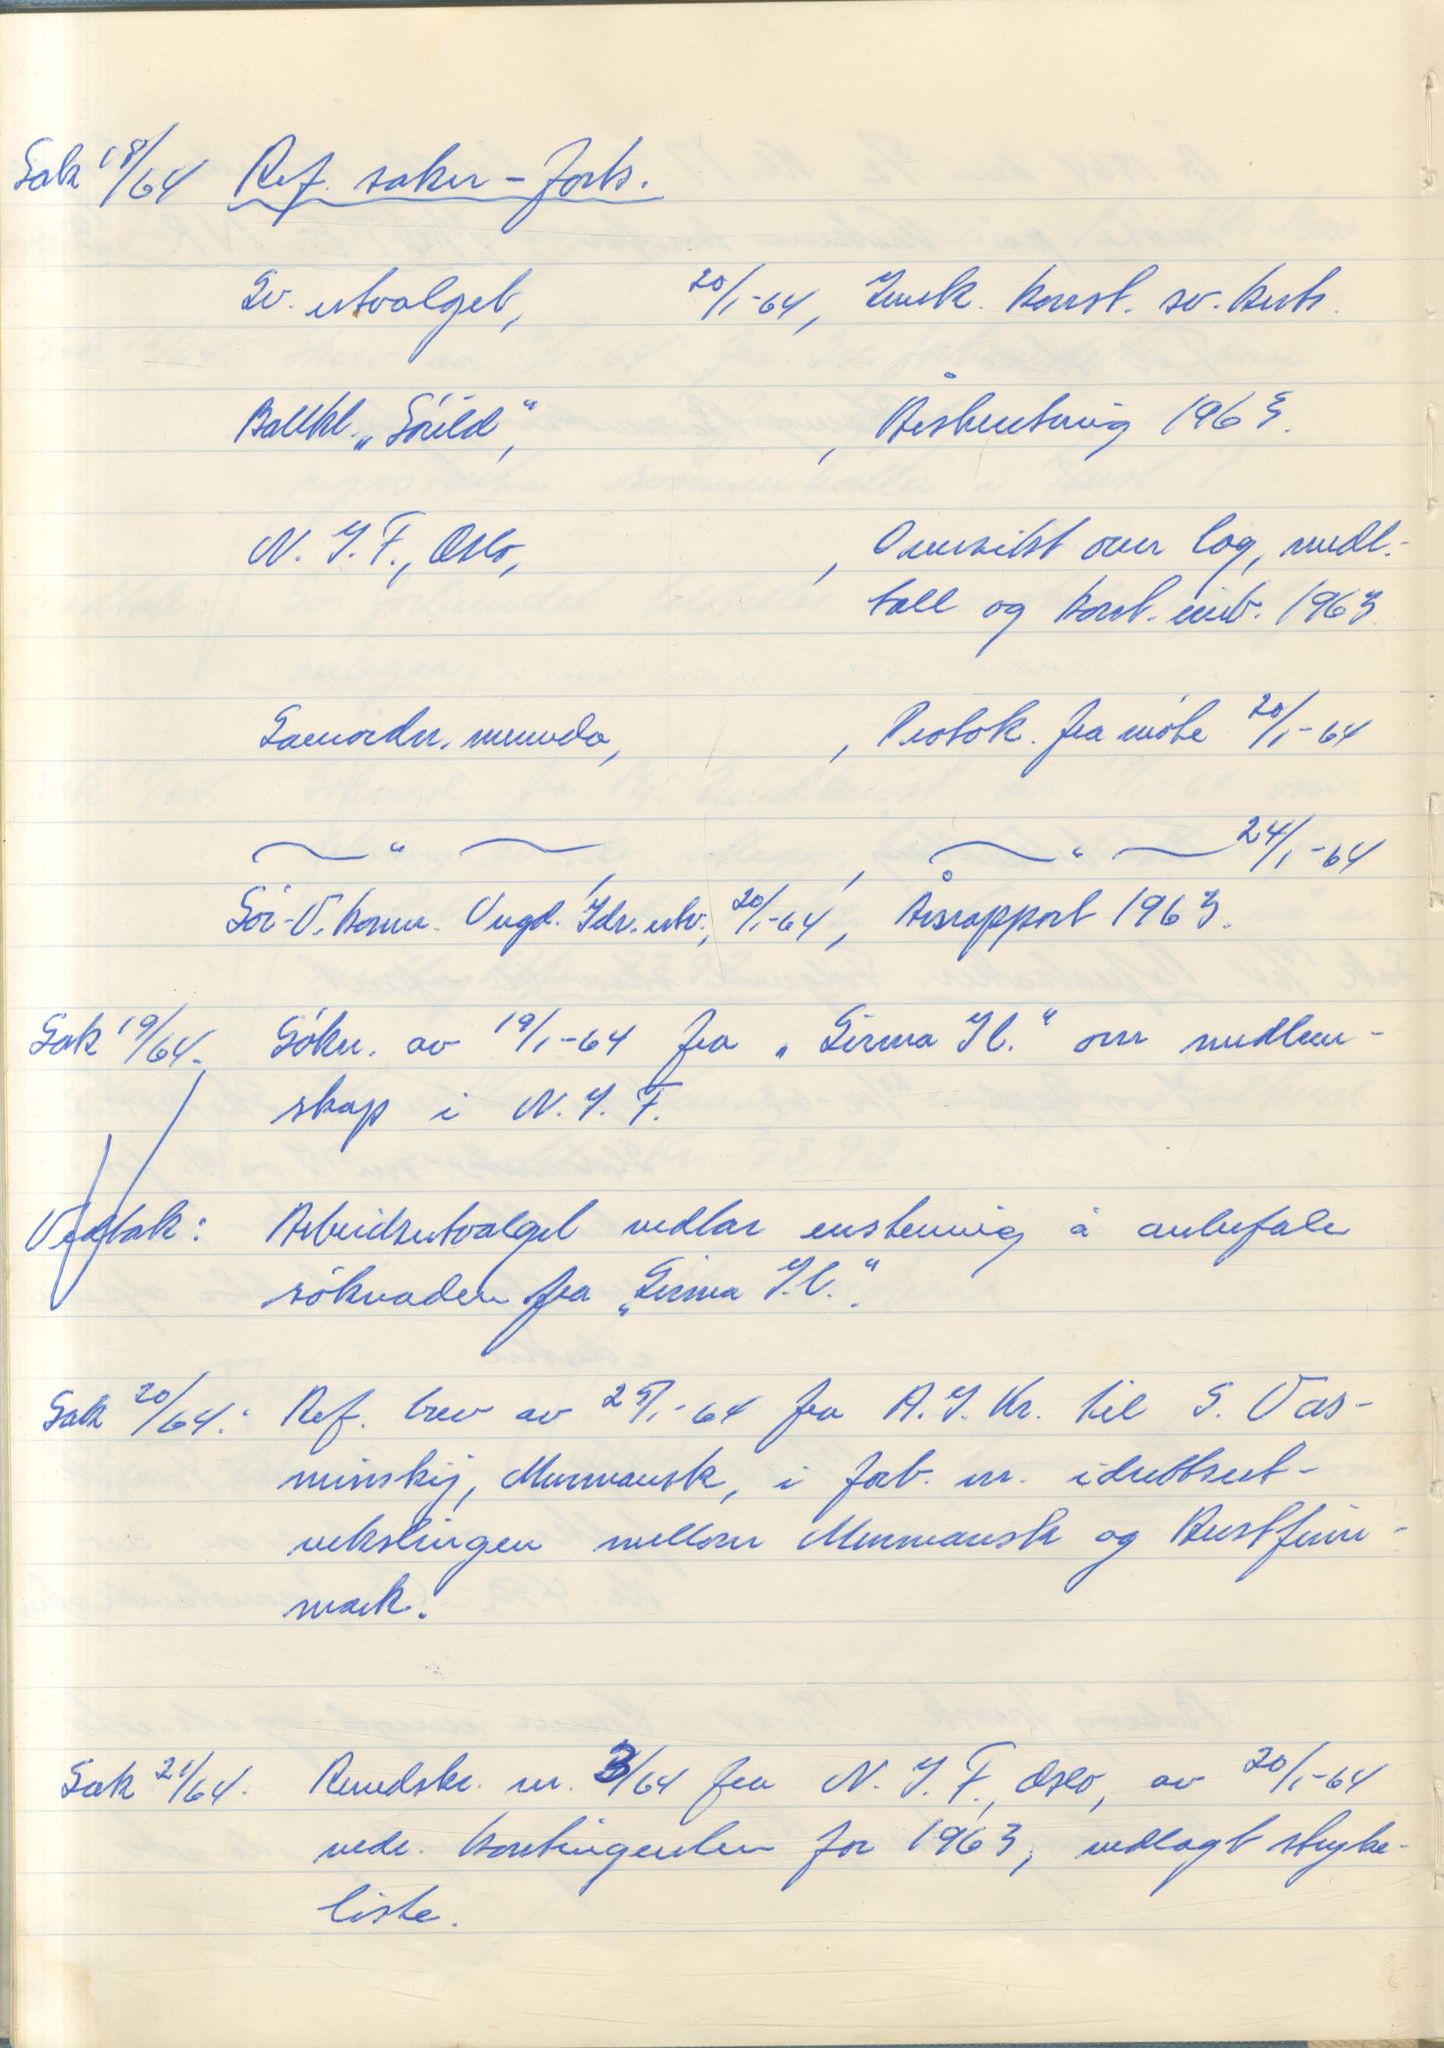 Sak 18/64 Ref. saker - forts.
Sv. utvalget, 20/1-64, Innk. konst. sv. krets.
Ballkl. „Sörild", , Årsberetning 1963.
N. I. F., Oslo, , Oversikt over lag, medl.-
tall og kont. innb. 1963.
Samordn. nemnda, , Protok. fra möte 20/1-64
— " — , , — " — 24/1-64
Sör-V. komm. Ungd. Idr. utv., 20/1-64, Årsrapport 1963.
Sak 19/64. Sökn. av 19/1-64 fra „Sirma Il." om medlem-
skap i N. I. F.
Vedtak: Arbeidsutvalget vedtar enstemmig å anbefale
söknaden fra „Sirma I.l.".
Sak 20/64: Ref. brev av 25/1-64 fra A. I. Kr. til S. Vas-
minskij, Murmansk, i forb. m. idrettsut-
vekslingen mellom Murmansk og Austfinn-
mark.
Sak 21/64. Rundskr. nr. 3/64 fra N. I. F., Oslo, av 20/1-64
vedr. kontingenten for 1963, vedlagt stryke-
liste.